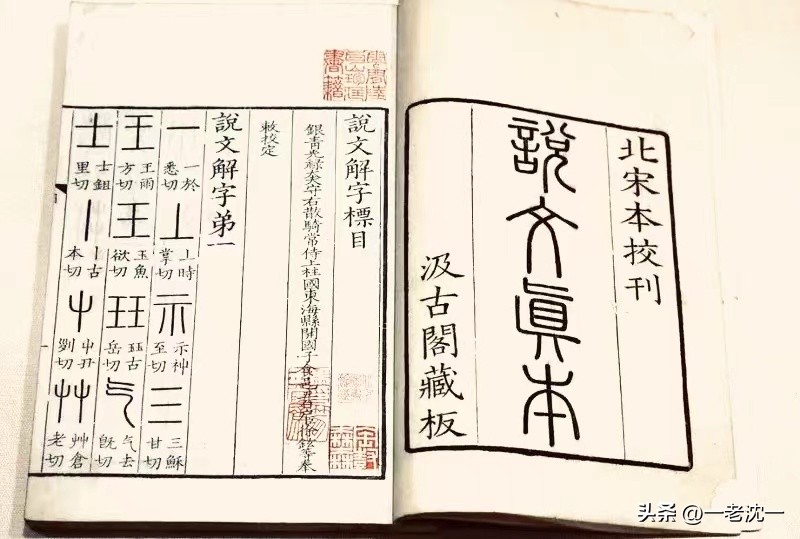 北宋本挍刊
說文眞本
汲古閣藏板
說文解字標目
銀青光祿大夫守右散騎常侍上柱國東海縣開國子食邑五百戶徐鉉等奉
敕挍定
說文解字弟一
一 一於悉切 丄 上時掌切 示 示神至切 三 三穌甘切
王 王雨方切 玉 玉魚欲切 玨 玨古岳切 气 气去旣切
士 士鉏里切 丨 丨古本切 屮 屮丑列切 艸 艸倉老切
头条 @一老沈一